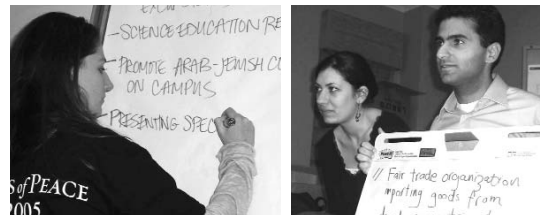 - SCIENCE EDUCATION RE
- PROMOTE ARAB-JEWISH CU
ON CAMPUS
- PRESENTING SPEC
S of PEACE
2005
// Fair trade organization
importing goods from